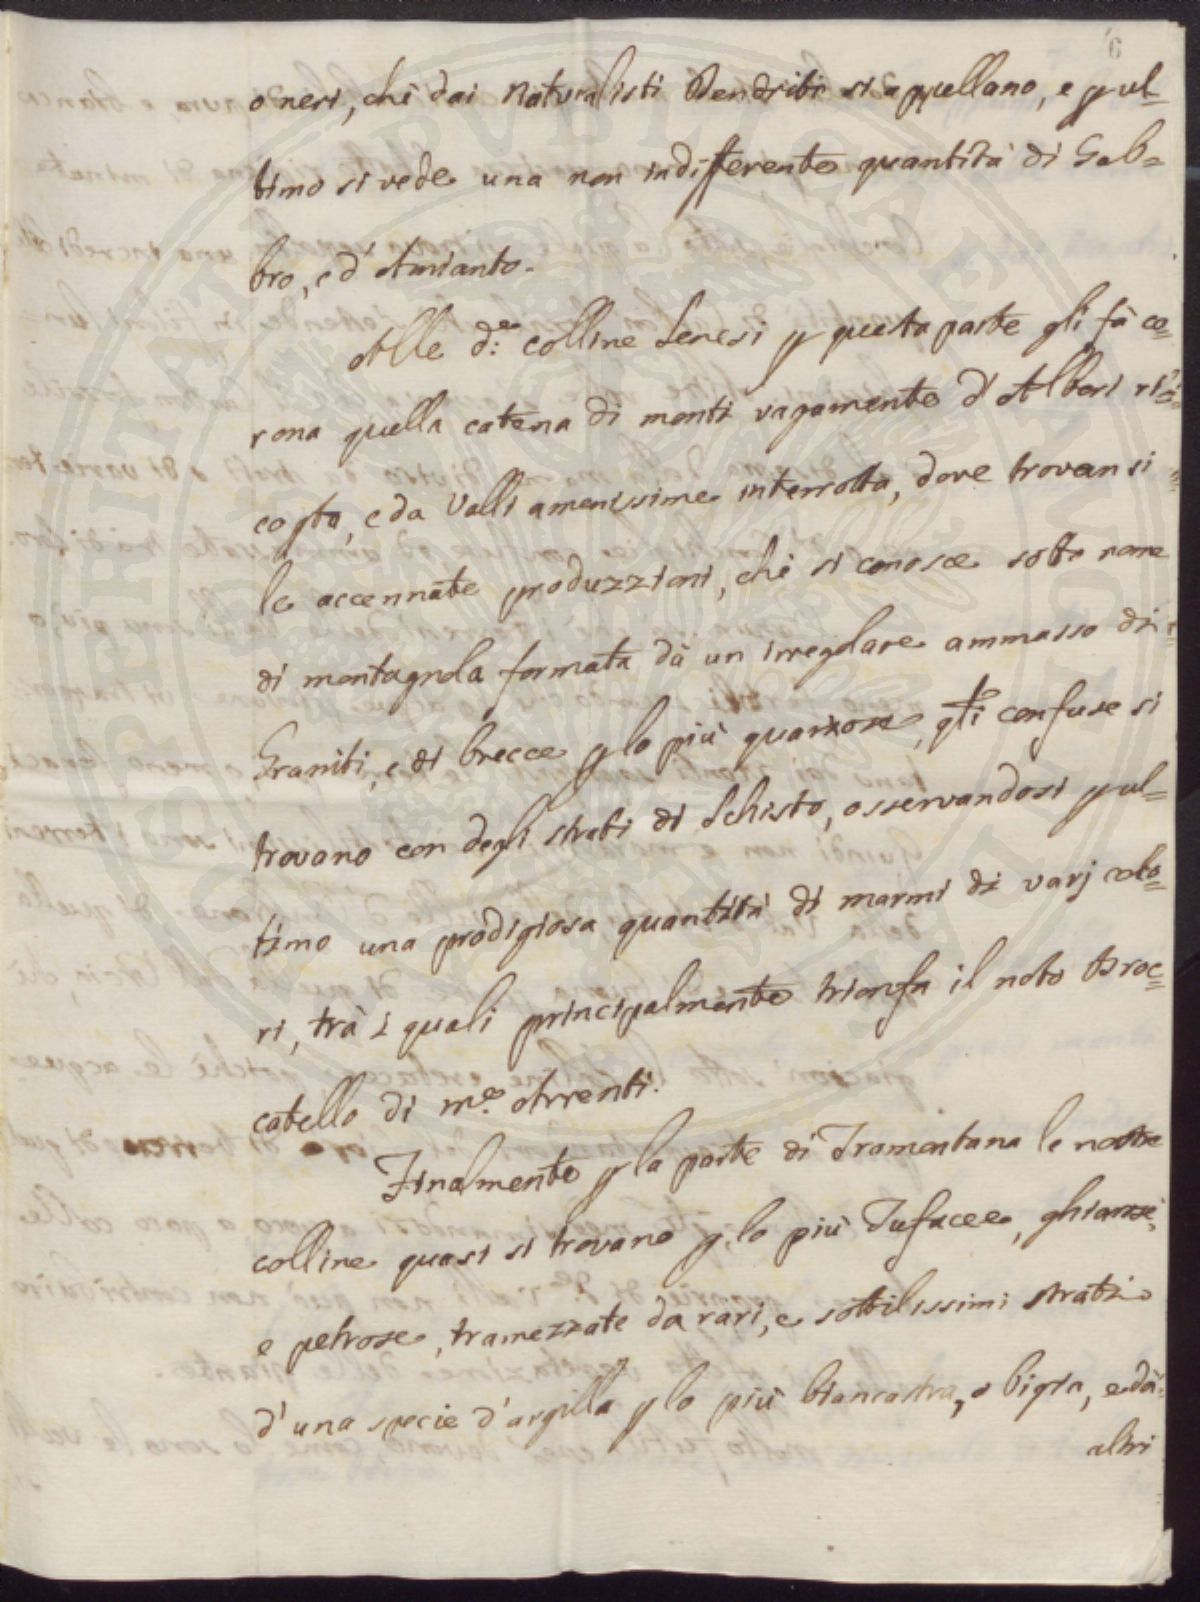 6
o neri, che dai Naturalisti Dendriti si appellano, e p ul=
timo si vede una non indifferente quantità di Gab=
bro, e d'Amianto.
Alle d.e colline Senesi p questa parte gli fà co=
rona quella catena di monti vagamente d'Alberi ri=
costa, e da Valli amenissime interrotta, dove trovansi
le accennate produzzioni, che si conosce sotto nome
di montagnola formata dà un irregolare ammasso di
Graniti, e di brecce p lo più quarzose, qli confuse si
trovano con degli strati di Schisto, osservandosi p ul=
timo una prodigiosa quantità di marmi di varj colo=
ri, trà i quali principalmente trionfa il noto Broc=
catello di m.e Arrenti.
Finalmente p la parte di Tramontana le nostre
colline quasi si trovano p lo più Tufacee, ghiarose,
e petrose, tramezzate da rari, e sottilissimi strati
d'una specie d'argilla p lo più biancastra, o bigia, e dà
altri